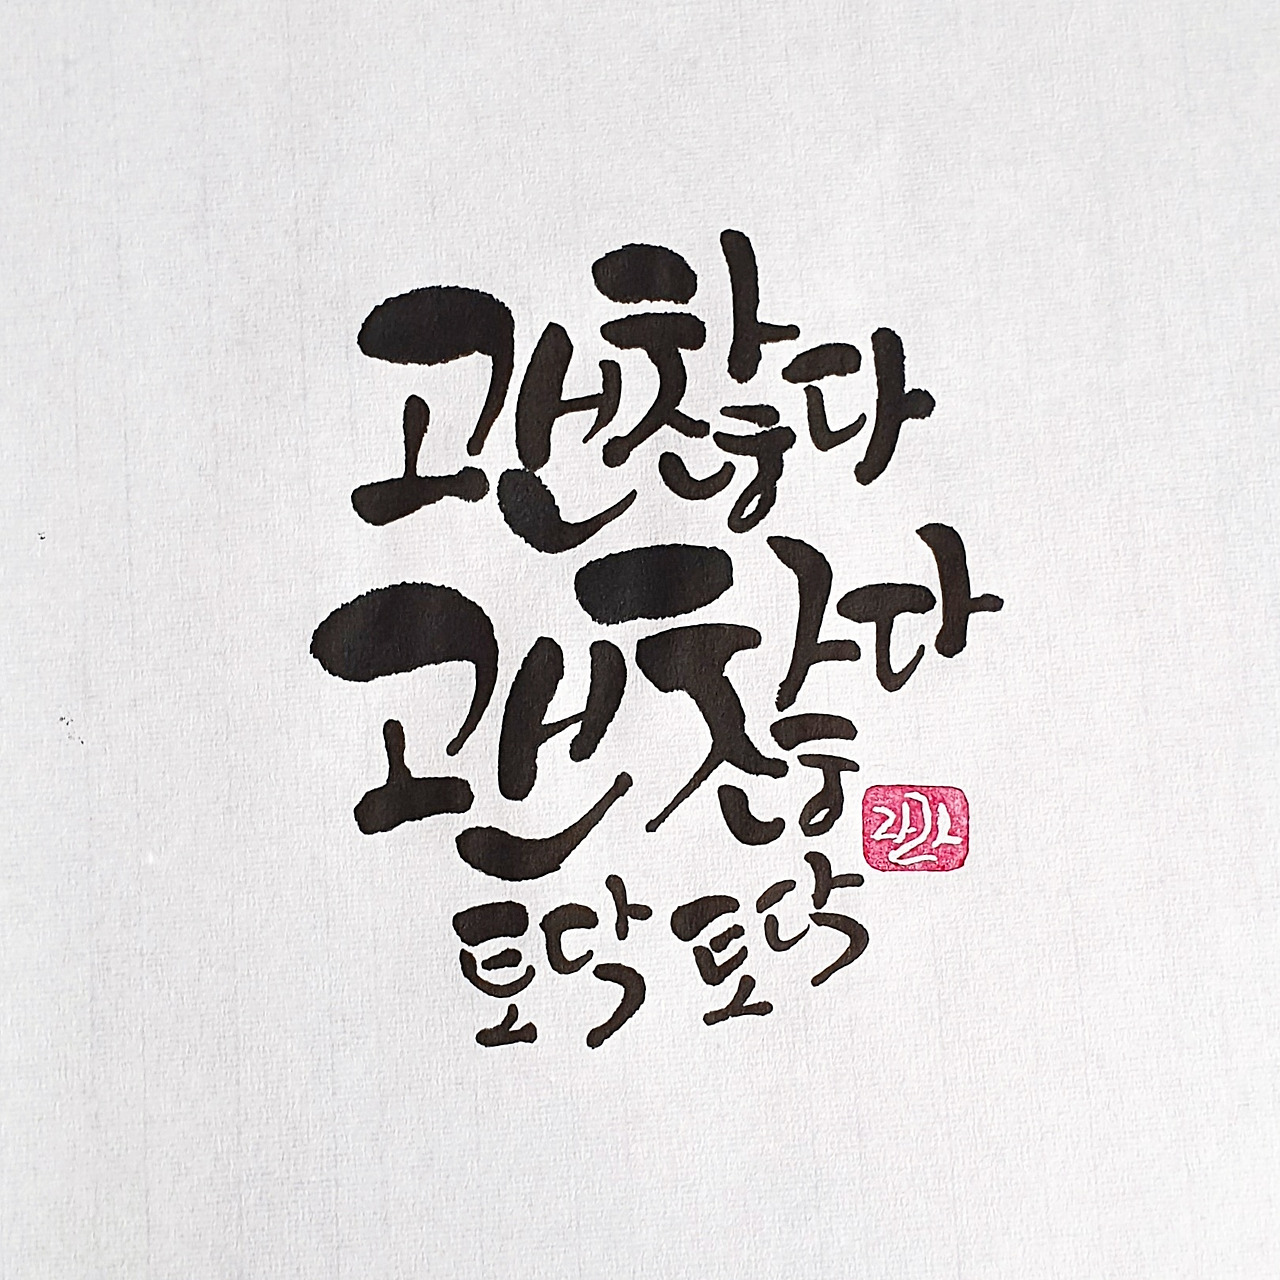 괜찮다
괜찮다
토닥 토닥